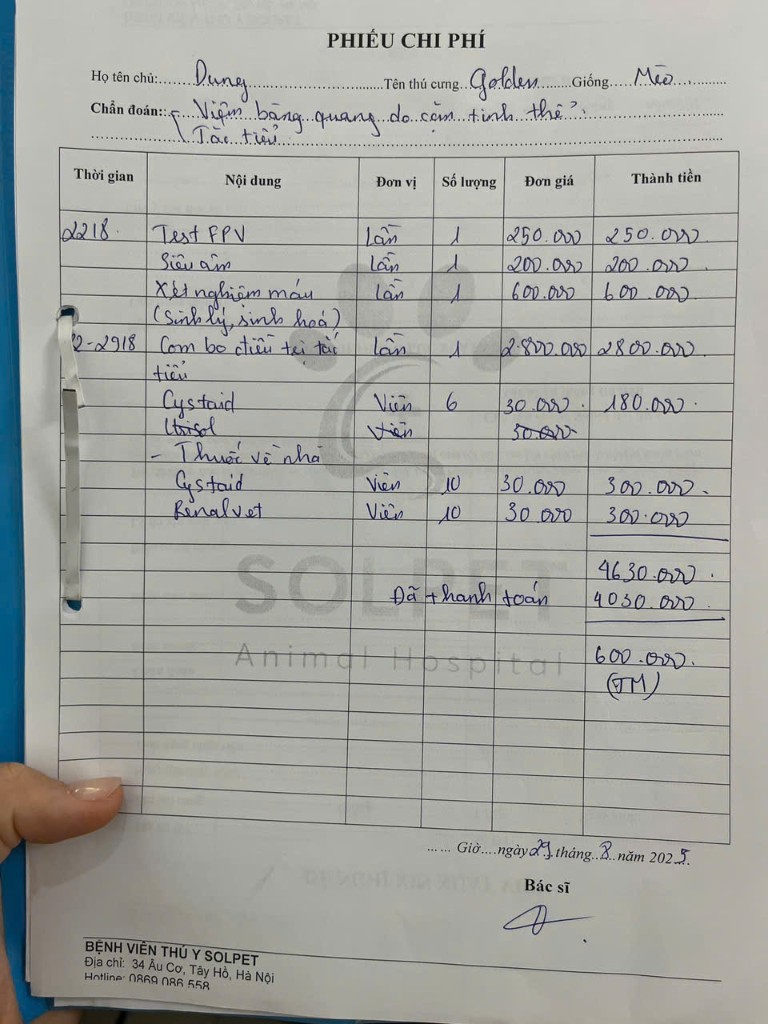 PHIẾU CHI PHÍ
Họ tên chủ:...... Dung ......Tên thú cưng.. Golden ......Giống.... Mèo ..........
Chẩn đoán: Viêm bàng quang do cặn tinh thể
Tắc tiểu
Thời gian Nội dung Đơn vị Số lượng Đơn giá Thành tiền
22/8 Test FPV Lần 1 250.000 250.000
Siêu âm Lần 1 200.000 200.000
Xét nghiệm máu Lần 1 600.000 600.000
(Sinh lý, sinh hoá)
2-29/8 Com bo điều trị tắc Lần 1 2.800.000 2800.000
tiểu
Cystaid Viên 6 30.000 180.000
Viên 50.000
- Thuốc về nhà
Cystaid Viên 10 30.000 300.000
Renalvet Viên 10 30.000 300.000
4630.000
Đã thanh toán 4030.000
600.000
(TM)
SOLPET
Animal Hospital
...... Giờ....ngày 29 tháng..8.năm 2025
Bác sĩ
BỆNH VIỆN THÚ Y SOLPET
Địa chỉ: 34 Âu Cơ, Tây Hồ, Hà Nội
Hotline: 0869 086 558